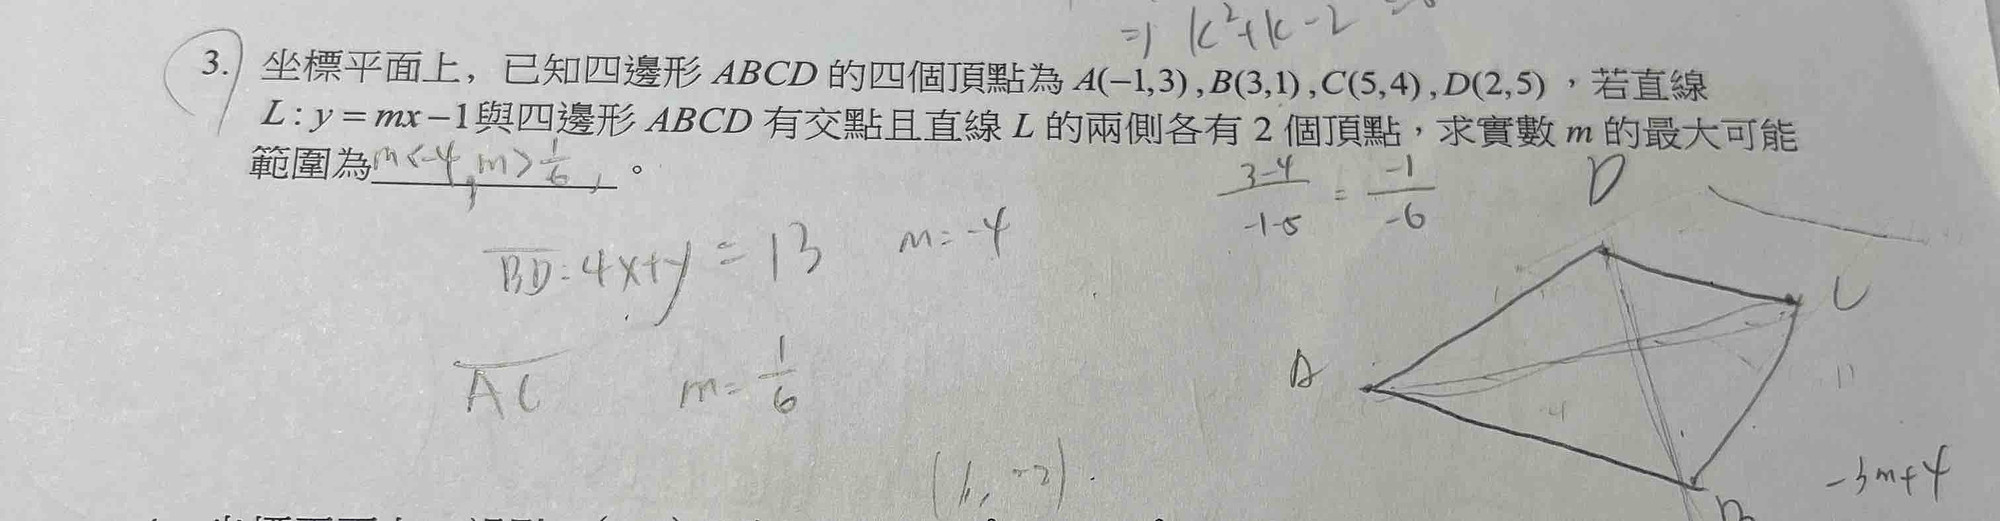 =) k²+k-2
3. 坐標平面上，已知四邊形 ABCD 的四個頂點為 A(−1,3) , B(3,1) , C(5,4) , D(2,5) ，若直線
L : y = mx −1與四邊形 ABCD 有交點且直線 L 的兩側各有 2 個頂點，求實數 m 的最大可能
範圍為 m<-4, m>1/6, 。
3-4/-1-5 = -1/-6
BD: 4x+y=13 m=-4
AC m=1/6
D
A
(1, -2)
-3m+4